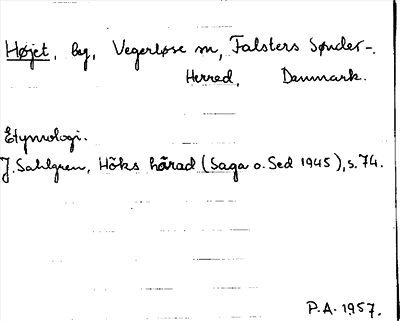 Højet, by, Vegerløse sn, Falsters Sønder-.
Herred, Danmark.
Etymologi.
J. Sahlgren, Höks härad (Saga o. Sed 1945), s. 74.
P.A. 1957.